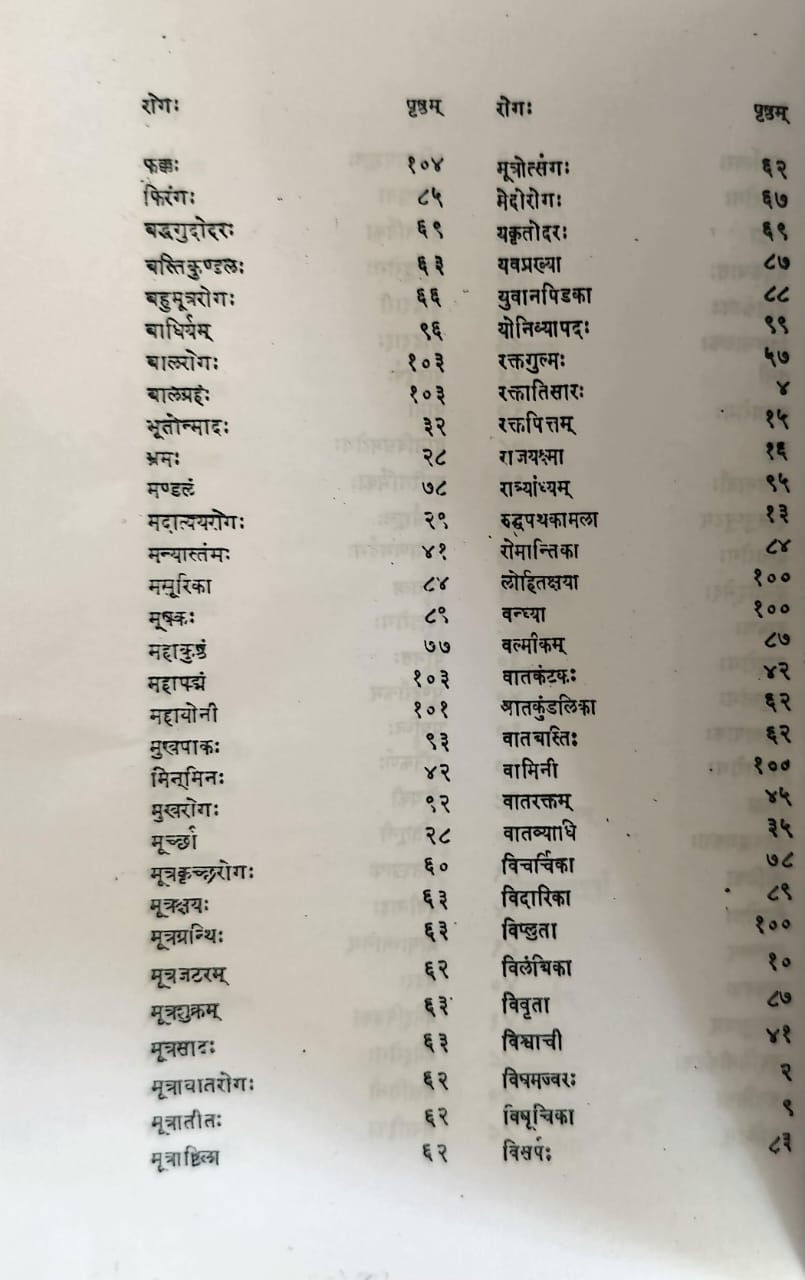 रोगः पृष्ठम् रोगः पृष्ठम्
फक्कः १०४ मूत्रोत्संगः ६२
फिरंगः ८५ मेदोरोगः ६७
बद्धगुदोदरः ६९ यकृतोदरः ६९
बस्तिकुण्डलः ६३ यवप्रख्या ८७
बहुमूत्ररोगः ६६ युवानपिडका ८८
बाधिर्यम् ९६ योनिव्यापदः ९९
बालरोगः १०३ रक्तगुल्मः ५७
बालग्रहः १०३ रक्तातिसारः ४
भूतोन्मादः ३२ रक्तपित्तम् १५
भ्रमः २८ राजयक्ष्मा १६
मण्डलं ७८ रात्र्यांध्यम् ९५
मदात्ययरोगः २९ रुद्धपथकामला १३
मन्यास्तंभः ४१ रोमान्तिका ८४
मसूरिका ८४ लोहितक्षया १००
मूषकः ८९ वन्ध्या १००
महाकुष्ठं ७७ वल्मीकम् ८७
महापद्मं १०३ वातकंटकः ४२
महायोनी १०१ वातकुंडलिका ६२
मुखपाकः ९३ वातबस्तिः ६२
मिन्मिनः ४२ वामिनी १००
मुखरोगः ९२ वातरक्तम् ४५
मूर्च्छा २८ वातव्याधि ३५
मूत्रकृच्छ्ररोगः ६० विचर्चिका ७८
मूत्रक्षयः ६३ विदारिका ८९
मूत्रग्रन्थिः ६३ विप्लुता १००
मूत्रजटरम् ६२ विलंबिका १०
मूत्रशुक्रम् ६३ विवृता ८७
मूत्रसादः ६३ विश्वाची ४१
मूत्राघातरोगः ६२ विषमज्वरः २
मूत्रातीतः ६२ विषूचिका ९
मूत्राष्ठिला ६२ विसर्पः ८३